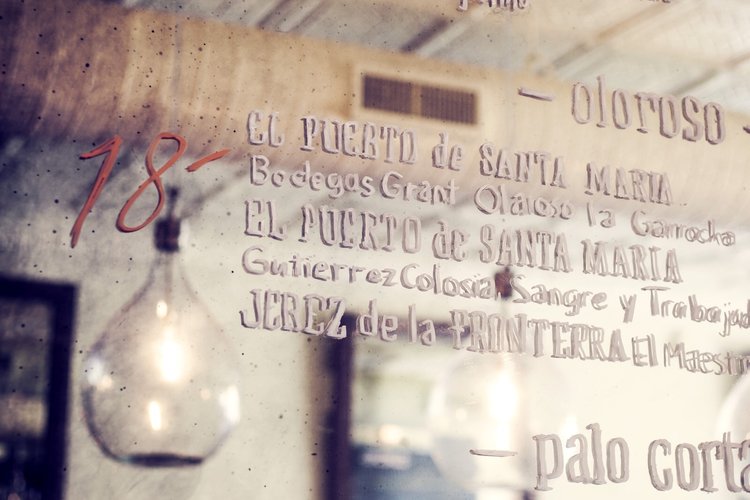 — oloroso -
18- EL PUERTO de SANTA MARIA
Bodegas Grant Olaioso la Garrocha
EL PUERTO de SANTA MARIA
Gutierrez Colosia Sangre y Trabajad
JEREZ de la FRONTERRA El Maestr
— palo corta